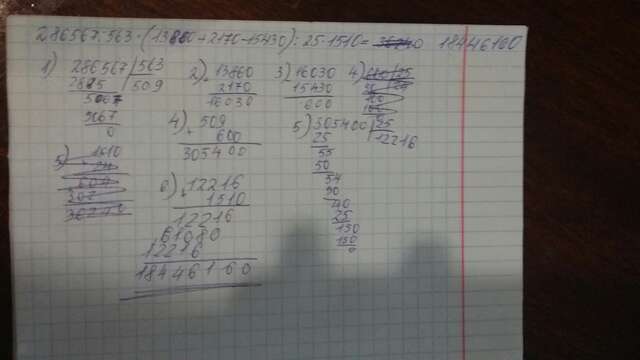 286567:563·(13860+2170-15430):25·1510= 18446160
1) 286567 563
2815 509
5067
5067
0
2) 13860
2170
16030
3) 16030
15430
600
4) 509
600
305400
5) 305400 25
25 12216
55
50
54
50
40
25
150
150
0
6) 12216
1510
12216
61080
12216
18446160